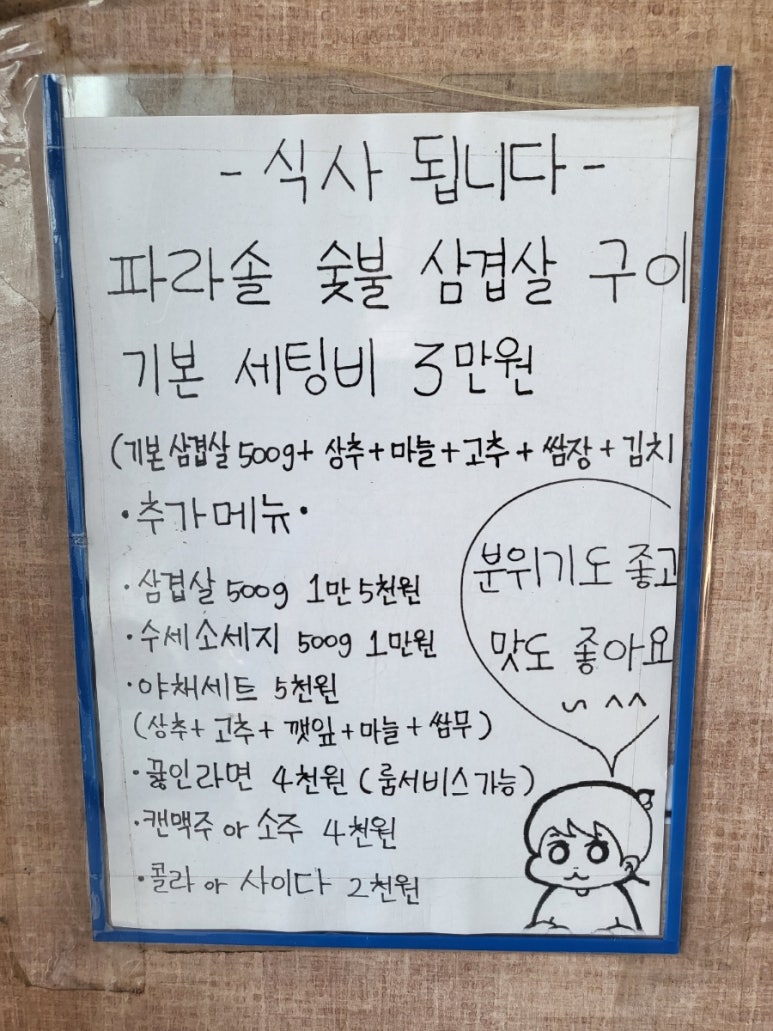 - 식사 됩니다 -
파라솔 숯불 삼겹살 구이
기본 세팅비 3만원
(기본삼겹살 500g+ 상추+마늘+고추+쌈장+김치
·추가메뉴·
·삼겹살 500g 1만5천원
·수세소세지 500g 1만원
·야채세트 5천원
(상추+고추+깻잎+마늘+쌈무)
·끓인라면 4천원 (룸서비스가능)
·캔맥주 or 소주 4천원
·콜라 or 사이다 2천원
분위기도 좋고
맛도 좋아요
~ ^^